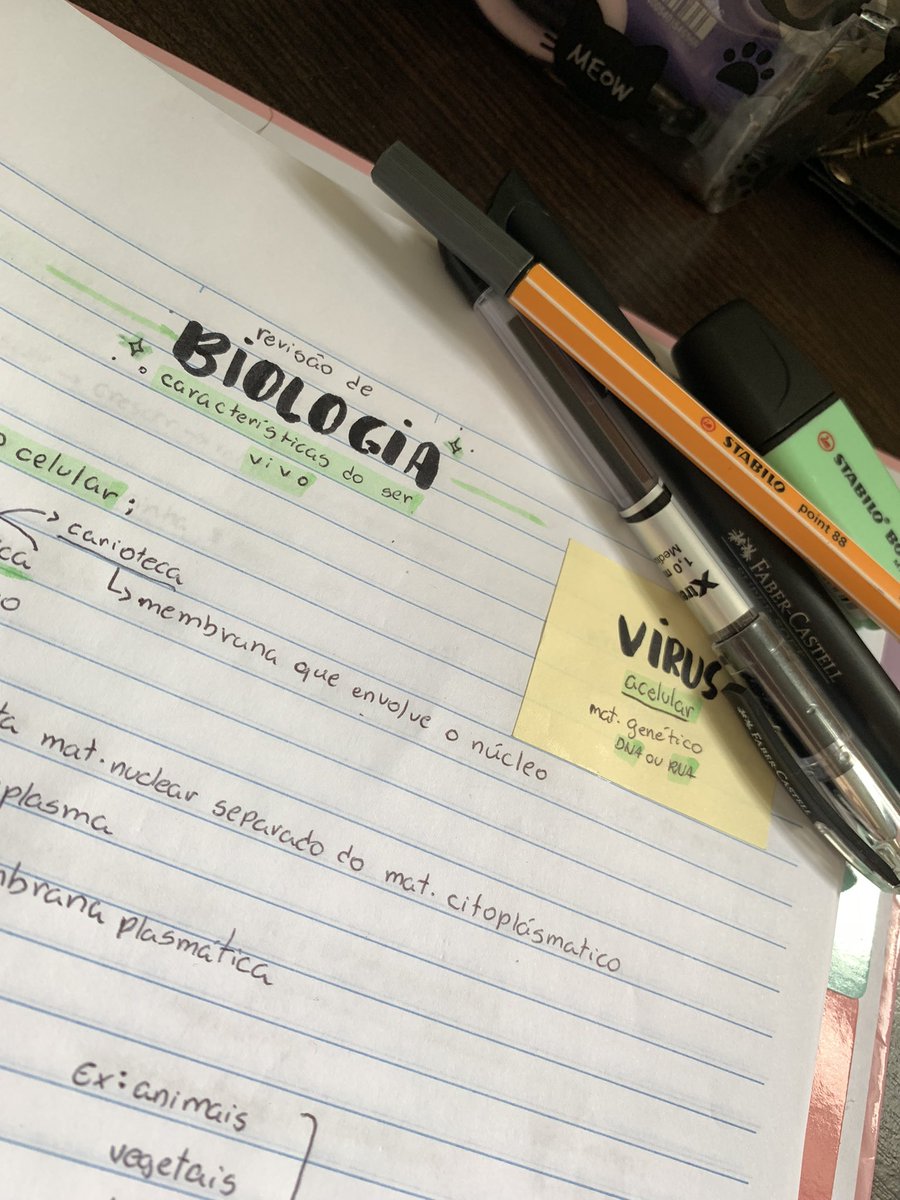 MEOW
revisão de
BIOLOGIA
características do ser
vivo
celular;
carioteca
membrana que envolve o núcleo
mat. nuclear separado do mat. citoplásmatico
plasma
plasmática
Ex: animais
vegetais
VIRUS
acelular
mat. genético
DNA ou RNA
STABILO point 88
STABILO
FABER-CASTELL
1,0 m
FABER-CASTELL